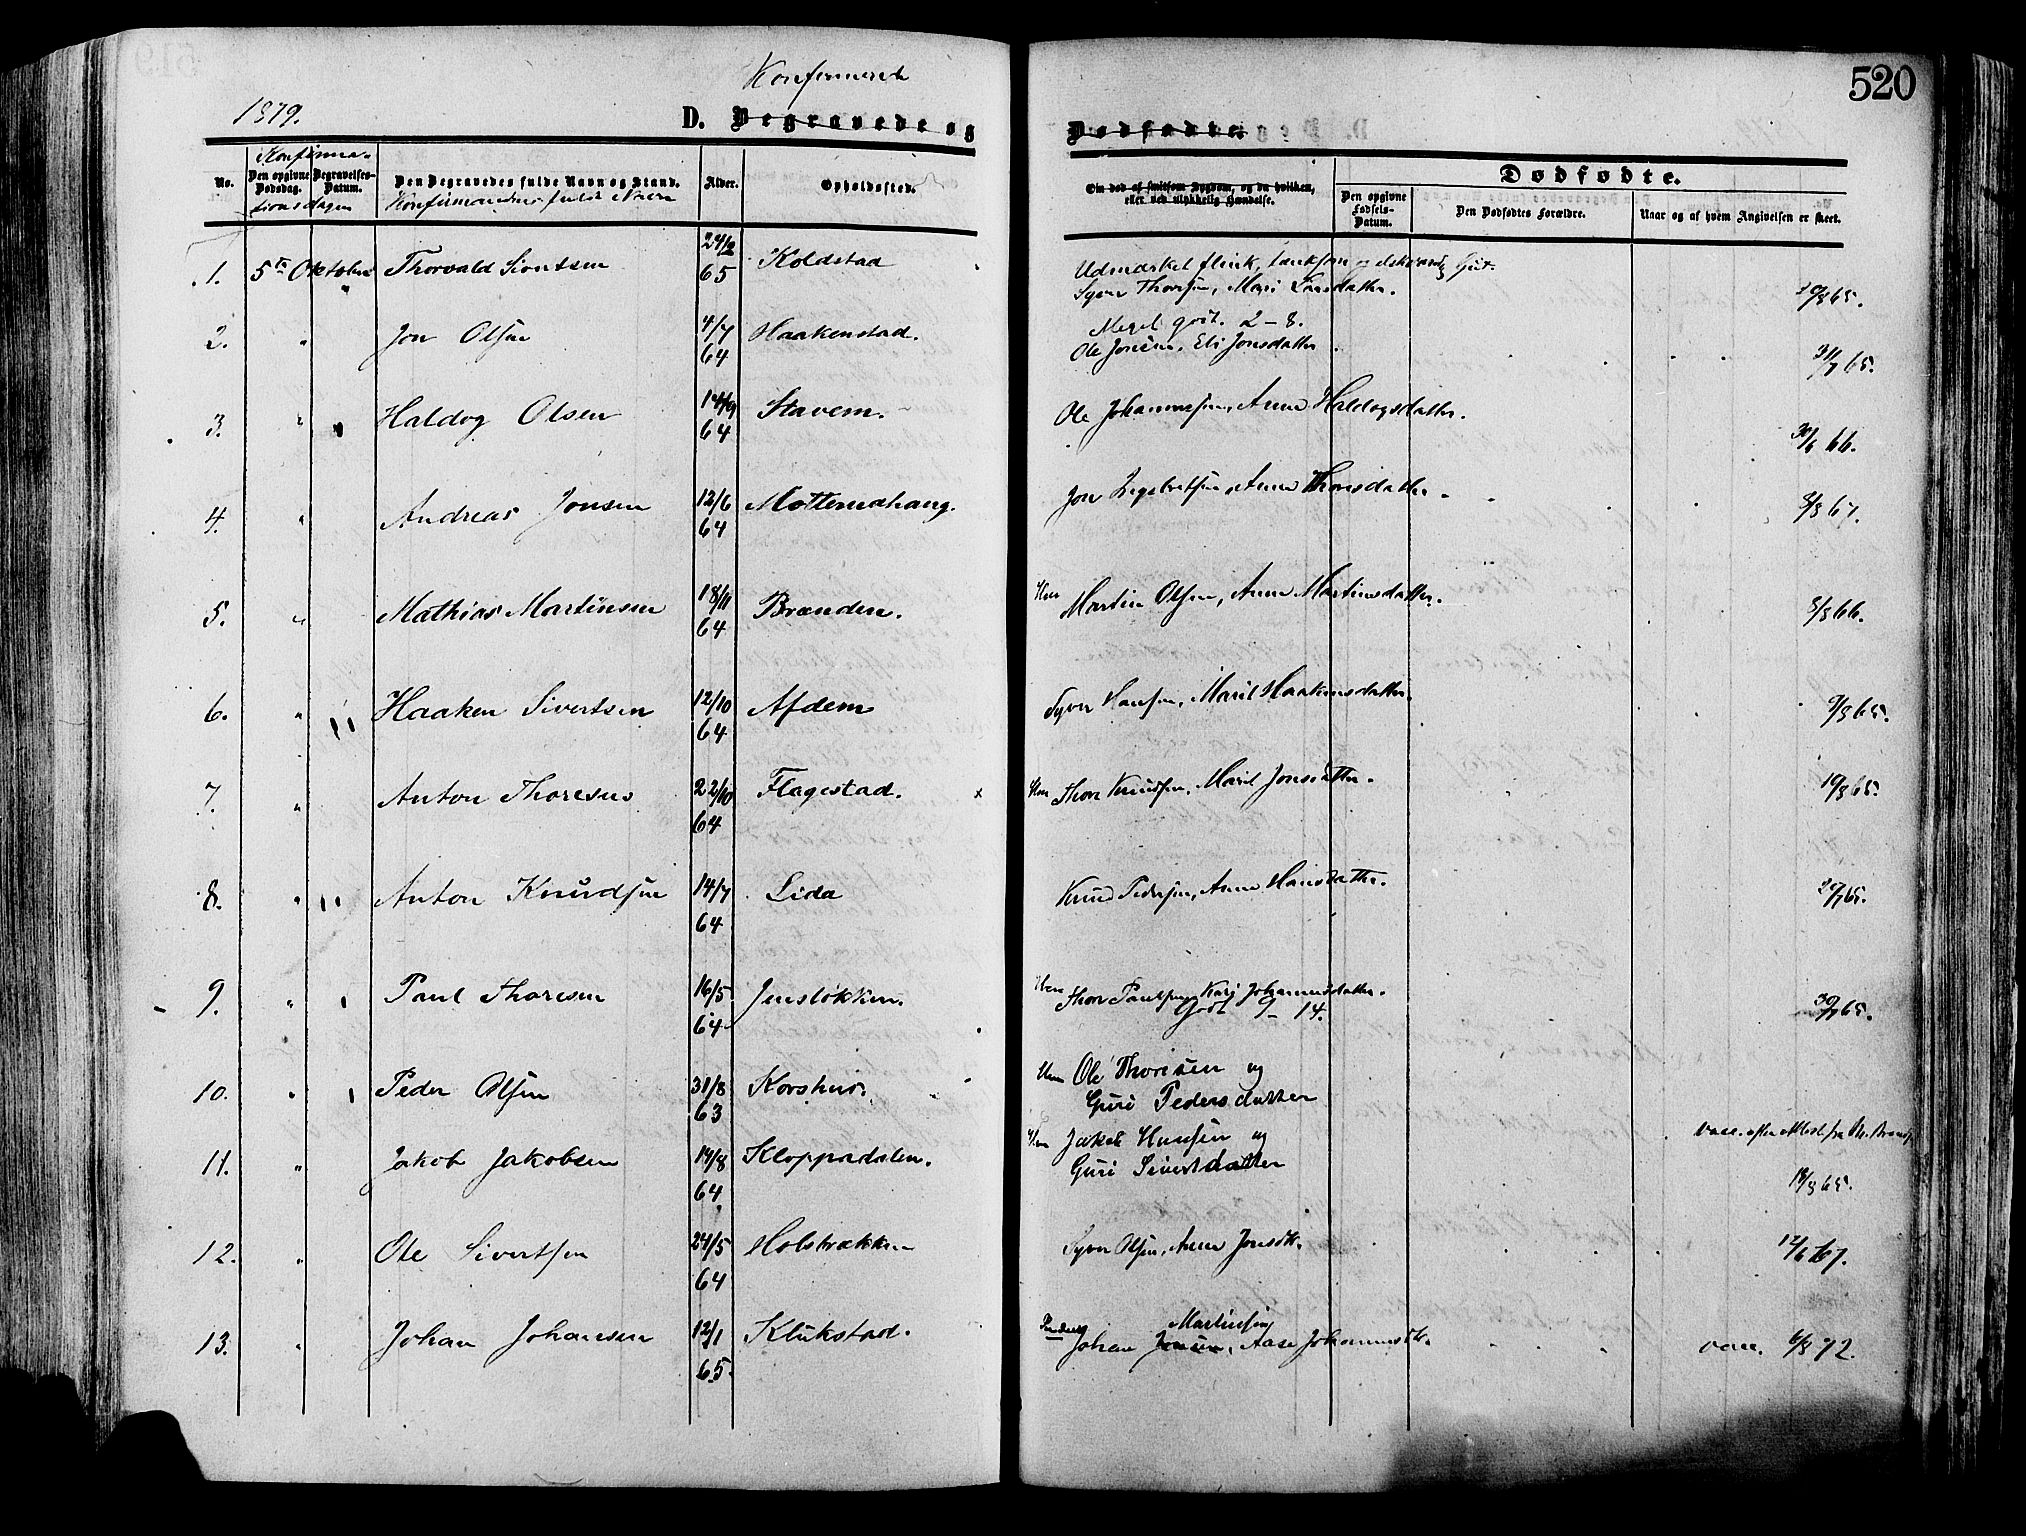 520
Konfirmerede
1879.
D. Begravede og Dødfødte.
Konfirma-
No. Den opgivne Dødsdag. Begravelses-Datum. Den Begravedes fulde Navn og Stand. Alder. Opholdssted. Om død af smitsom Sygdom, og da hvilken, eller ved ulykkelig Hændelse. Dødfødte. Den opgivne Fødsels-Datum. Den Dødfødtes Forældre. Naar og af hvem Angivelsen er skeet.
tionsdagen Konfirmandens fulde Navn
1. 5te Oktober Thorvald Sivertsen 24/2 65 Koldstad Udmærket flink, og Gut.
Syver Thoresen, Mari Larsdatter.
2. " Jon Olsen 4/7 64 Haakenstad. Meget godt. 2-8.
Ole Jonsen, Eli Jonsdatter 31/7 65.
3. " Haldog Olsen 14/9 64 Stavem. Ole Johannessen, Anne Haldogsdatter. 30/6 66.
4. " Andreas Jonsen 12/6 64 Jon Ingebretsen, Anne Thorsdatter. 8/8 67.
5. " Mathias Martinsen 18/11 64 Brænden. Martin Olsen, Anne Martinsdatter. 8/8 66.
6. " Haaken Sivertsen 12/10 64 Afdem Syver Hansen, Marit Haakensdatter. 9/8 65.
7. " Anton Thoresen 22/10 64 Flagestad. x Thore Knudsen, Marit Jonsdatter. 19/8 65.
8. " Anton Knudsen 14/7 64 Lida Knud Pedersen, Anne Hansdatter. 20/7 65.
9. " Paul Thoresen 16/5 64 Jensløkken. Thore Paulsen, Kari Johannesdatter.
Godt 9-14. 30/7 65.
10. " Peder Olsen 31/8 63 Korshus. Ole Thoresen og
Guri Pedersdatter
11. " Jakob Jakobsen 14/8 64 Kloppadalen. Jakob Hansen og
Guri Sivertdatter vacc. efter Attest fra
18/8 65.
12. " Ole Sivertsen 24/5 64 Holstrækken Syver Olsen, Anne Jonsdtr. 12/6 67.
13. " Johan Johansen 12/1 65. Klukstad. Martinsen
Johan Jonsen, Aase Johannesdtr. vacc. 6/8 72.